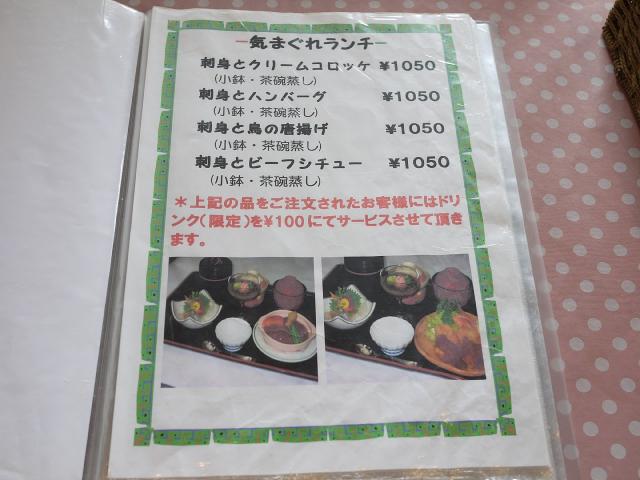 -気まぐれランチ-
刺身とクリームコロッケ ¥1050
(小鉢・茶碗蒸し)
刺身とハンバーグ ¥1050
(小鉢・茶碗蒸し)
刺身と鳥の唐揚げ ¥1050
(小鉢・茶碗蒸し)
刺身とビーフシチュー ¥1050
(小鉢・茶碗蒸し)
*上記の品をご注文されたお客様にはドリ
ンク(限定)を¥100にてサービスさせて頂き
ます。